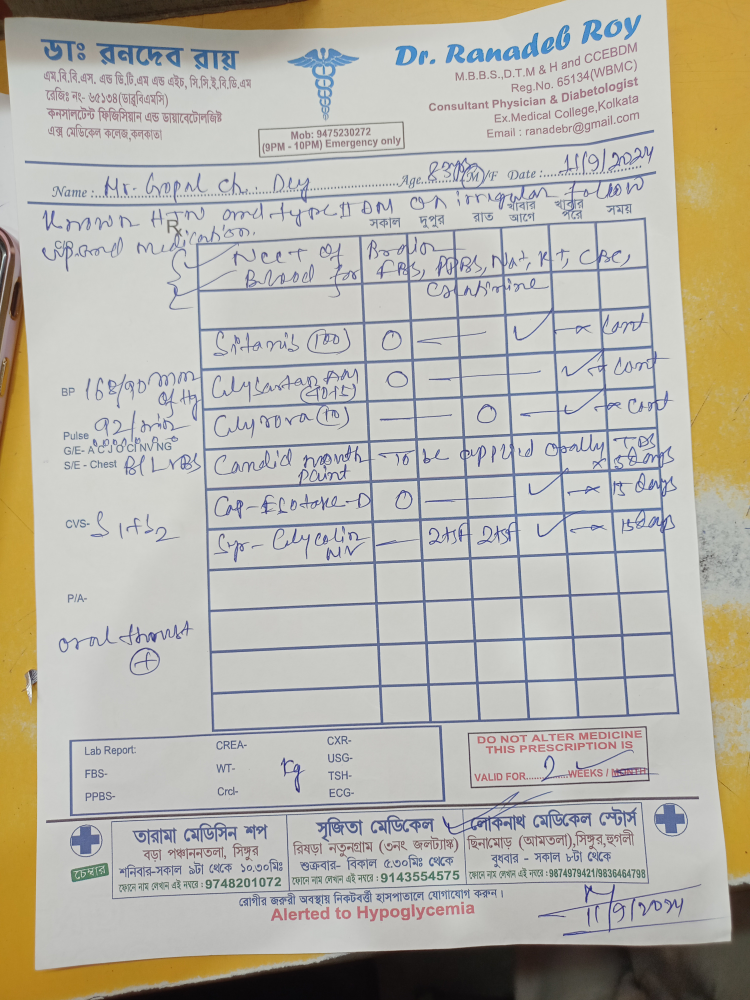 ডাঃ রনদেব রায়
এম.বি.বি.এস. এন্ড ডি.টি.এম এন্ড এইচ, সি.সি.ই.বি.ডি.এম
রেজিঃ নং- ৬৫১৩৪(ডাব্লুবিএমসি)
কনসালটেন্ট ফিজিসিয়ান এন্ড ডায়াবেটোলজিষ্ট
এক্স মেডিকেল কলেজ,কলকাতা
Dr. Ranadeb Roy
M.B.B.S.,D.T.M & H and CCEBDM
Reg.No. 65134(WBMC)
Consultant Physician & Diabetologist
Ex.Medical College,Kolkata
Email : ranadebr@gmail.com
Mob: 9475230272
(9PM - 10PM) Emergency only
Name : Mr. Gopal Ch. Dey Age 83 yrs M/F Date : 11/9/2024
Known HTN and type II DM on irregular follow
up and medication.
Rx
সকাল দুপুর রাত খাবার আগে খাবার পরে সময়
NCCT of Brain
Blood for FBS, PPBS, Na+, K+, CBC,
Creatinine
Sitanis (100) O — ✓ → Cont
BP 168/90 mm of Hg
Glysartan AM O — ✓ → Cont
Pulse 92/min
Glyrova (10) — O — ✓ → Cont
G/E- A C J O CI NV NG
S/E - Chest B/L VBS
Candid mouth paint To be applied orally TDS x 5 days
Cap- D O — ✓ → 15 days
CVS- S1+S2
Syr- MV — 2tsf 2tsf ✓ → 15 days
P/A-
Oral thrush
+
Lab Report: CREA- CXR-
FBS- WT- Kg USG-
TSH-
PPBS- Crcl- ECG-
DO NOT ALTER MEDICINE
THIS PRESCRIPTION IS
VALID FOR 2 WEEKS / MONTH
চেম্বার
তারামা মেডিসিন শপ
বড়া পঞ্চাননতলা, সিঙ্গুর
শনিবার-সকাল ৯টা থেকে ১০.৩০মিঃ
ফোনে নাম লেখান এই নম্বরে : 9748201072
সৃজিতা মেডিকেল
রিষড়া নতুনগ্রাম (৩নং জলট্যাঙ্ক)
শুক্রবার- বিকাল ৫.৩০মিঃ থেকে
ফোনে নাম লেখান এই নম্বরে : 9143554575
লোকনাথ মেডিকেল স্টোর্স
ছিনামোড় (আমতলা),সিঙ্গুর,হুগলী
বুধবার - সকাল ৮টা থেকে
ফোনে নাম লেখান এই নম্বরে : 9874979421/9836464798
রোগীর জরুরী অবস্থায় নিকটবর্তী হাসপাতালে যোগাযোগ করুন।
Alerted to Hypoglycemia
11/9/2024